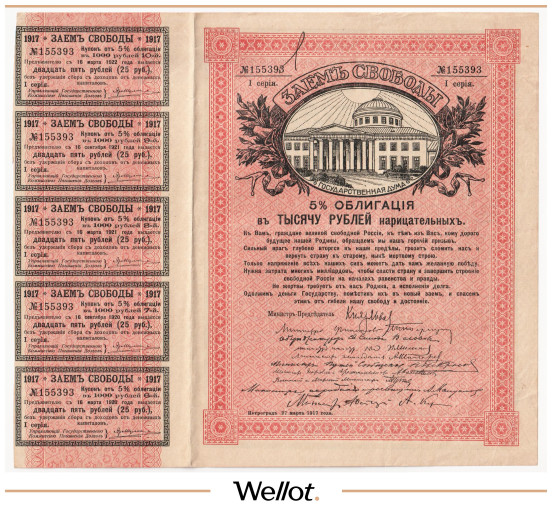 1917 * ЗАЕМЪ СВОБОДЫ * 1917
№155393 Купонъ отъ 5% облигаціи
въ 1000 рублей 10-й.
Предъявителю съ 16 марта 1922 года выдаются
двадцать пять рублей (25 руб.),
безъ удержанія сбора съ доходовъ отъ денежныхъ
капиталовъ.
I серія.
Управляющій Государственной
Коммиссіею Погашенія Долговъ
1917 * ЗАЕМЪ СВОБОДЫ * 1917
№155393 Купонъ отъ 5% облигаціи
въ 1000 рублей 9-й.
Предъявителю съ 16 сентября 1921 года выдаются
двадцать пять рублей (25 руб.),
безъ удержанія сбора съ доходовъ отъ денежныхъ
капиталовъ.
I серія.
Управляющій Государственной
Коммиссіею Погашенія Долговъ
1917 * ЗАЕМЪ СВОБОДЫ * 1917
№155393 Купонъ отъ 5% облигаціи
въ 1000 рублей 8-й.
Предъявителю съ 16 марта 1921 года выдаются
двадцать пять рублей (25 руб.),
безъ удержанія сбора съ доходовъ отъ денежныхъ
капиталовъ.
I серія.
Управляющій Государственной
Коммиссіею Погашенія Долговъ
1917 * ЗАЕМЪ СВОБОДЫ * 1917
№155393 Купонъ отъ 5% облигаціи
въ 1000 рублей 7-й.
Предъявителю съ 16 сентября 1920 года выдаются
двадцать пять рублей (25 руб.),
безъ удержанія сбора съ доходовъ отъ денежныхъ
капиталовъ.
I серія.
Управляющій Государственной
Коммиссіею Погашенія Долговъ
1917 * ЗАЕМЪ СВОБОДЫ * 1917
№155393 Купонъ отъ 5% облигаціи
въ 1000 рублей 6-й.
Предъявителю съ 16 марта 1920 года выдаются
двадцать пять рублей (25 руб.),
безъ удержанія сбора съ доходовъ отъ денежныхъ
капиталовъ.
I серія.
Управляющій Государственной
Коммиссіею Погашенія Долговъ
№155393 №155393
I серія. I серія.
ЗАЕМЪ СВОБОДЫ
ГОСУДАРСТВЕННАЯ ДУМА
5% ОБЛИГАЦІЯ
въ ТЫСЯЧУ РУБЛЕЙ нарицательныхъ.
Къ Вамъ, граждане великой свободной Россіи, къ тѣмъ изъ Васъ, кому дорого
будущее нашей Родины, обращаемъ мы нашъ горячій призывъ.
Сильный врагъ глубоко вторгся въ наши предѣлы, грозитъ сломить насъ и
вернуть страну къ старому, нынѣ мертвому строю.
Только напряженіе всѣхъ нашихъ силъ можетъ дать намъ желанную побѣду.
Нужна затрата многихъ милліардовъ, чтобы спасти страну и завершить строеніе
свободной Россіи на началахъ равенства и правды.
Не жертвы требуетъ отъ насъ Родина, а исполненія долга.
Одолжимъ деньги Государству, помѣстивъ ихъ въ новый заемъ, и спасемъ
этимъ отъ гибели нашу свободу и достояніе.
Министръ-Предсѣдатель
Петроградъ 27 марта 1917 года.
Wellot.